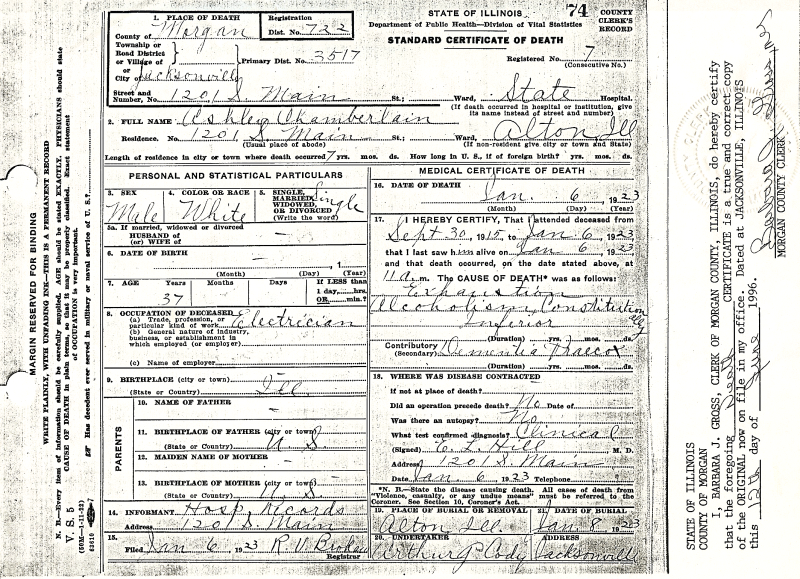 1. PLACE OF DEATH
Registration
County of Morgan
Dist. No. 722
Township or
Road District
or Village of
or
City of Jacksonville
Primary Dist. No. 3517
Street and
Number, No. 1201 S. Main St.; Ward, State Hospital.
STATE OF ILLINOIS
Department of Public Health—Division of Vital Statistics
74
COUNTY
CLERK'S
RECORD
STANDARD CERTIFICATE OF DEATH
Registered No. 7
(Consecutive No.)
(If death occurred in hospital or institution, give
its name instead of street and number)
2. FULL NAME Ashley Chamberlain
Residence. No. 1201 S. Main St.; Ward, Alton, Ill
(Usual place of abode) (If non-resident give city or town and State)
Length of residence in city or town where death occurred 7 yrs. mos. ds. How long in U. S., if of foreign birth? yrs. mos. ds.
PERSONAL AND STATISTICAL PARTICULARS
3. SEX
Male
4. COLOR OR RACE
White
5. SINGLE,
MARRIED,
WIDOWED,
OR DIVORCED
(Write the word)
Single
5a. If married, widowed or divorced
HUSBAND of
(or) WIFE of —
6. DATE OF BIRTH
— , 1
(Month) (Day) (Year)
7. AGE Years Months Days If LESS than
1 day, hrs.
OR min.?
37
8. OCCUPATION OF DECEASED
(a) Trade, profession, or
particular kind of work Electrician
(b) General nature of industry,
business, or establishment in
which employed (or employer)
(c) Name of employer
9. BIRTHPLACE (city or town)
(State or Country) Ill
PARENTS
10. NAME OF FATHER
—
11. BIRTHPLACE OF FATHER (city or town)
(State or Country) U S
12. MAIDEN NAME OF MOTHER
—
13. BIRTHPLACE OF MOTHER (city or town)
(State or Country) U. S.
14. INFORMANT Hosp. Records
Address 1201 S. Main
15.
Filed Jan 6 1923 R. V. Brokaw
Registrar
MEDICAL CERTIFICATE OF DEATH
16. DATE OF DEATH
Jan. 6 , 1923
(Month) (Day) (Year)
17. I HEREBY CERTIFY, That I attended deceased from
Sept 30, 1915, to Jan 6, 1923,
that I last saw him alive on Jan 6, 1923
and that death occurred, on the date stated above, at
11 a. m. The CAUSE OF DEATH* was as follows:
Exhaustion
Alcoholism, Constitution
ally
Inferior
(Duration) yrs. mos. ds.
Contributory
(Secondary) Dementia Praecox
(Duration) yrs. mos. ds.
18. WHERE WAS DISEASE CONTRACTED
if not at place of death? —
Did an operation precede death? No Date of
Was there an autopsy? No
What test confirmed diagnosis? Clinical
(Signed) E. L. Hill M. D.
Address 1201 S. Main
Date Jan 6, 1923 Telephone
*N. B.—State the disease causing death. All cases of death from
"Violence, casualty, or any undue means" must be referred to the
Coroner. See Section 10, Coroner's Act.
19. PLACE OF BURIAL OR REMOVAL
Alton Ill.
21. DATE OF BURIAL
Jan. 8 1923
20. UNDERTAKER
Arthur P Cody
ADDRESS
Jacksonville
MARGIN RESERVED FOR BINDING
WRITE PLAINLY, WITH UNFADING INK—THIS IS A PERMANENT RECORD
N. B.—Every item of information should be carefully supplied. AGE should be stated EXACTLY. PHYSICIANS should state
CAUSE OF DEATH in plain terms, so that it may be properly classified. Exact statement
of OCCUPATION is very important.
Has decedent ever served in military or naval service of U. S.?
V. S. 5
(50M—1-11-22)
83610
7
STATE OF ILLINOIS
COUNTY OF MORGAN
I, BARBARA J. GROSS, CLERK OF MORGAN COUNTY, ILLINOIS, do hereby certify
that the foregoing Death CERTIFICATE is a true and correct copy
of the ORIGINAL now on file in my office. Dated at JACKSONVILLE, ILLINOIS
this 12th day of June 1996.
Barbara J. Gross
MORGAN COUNTY CLERK